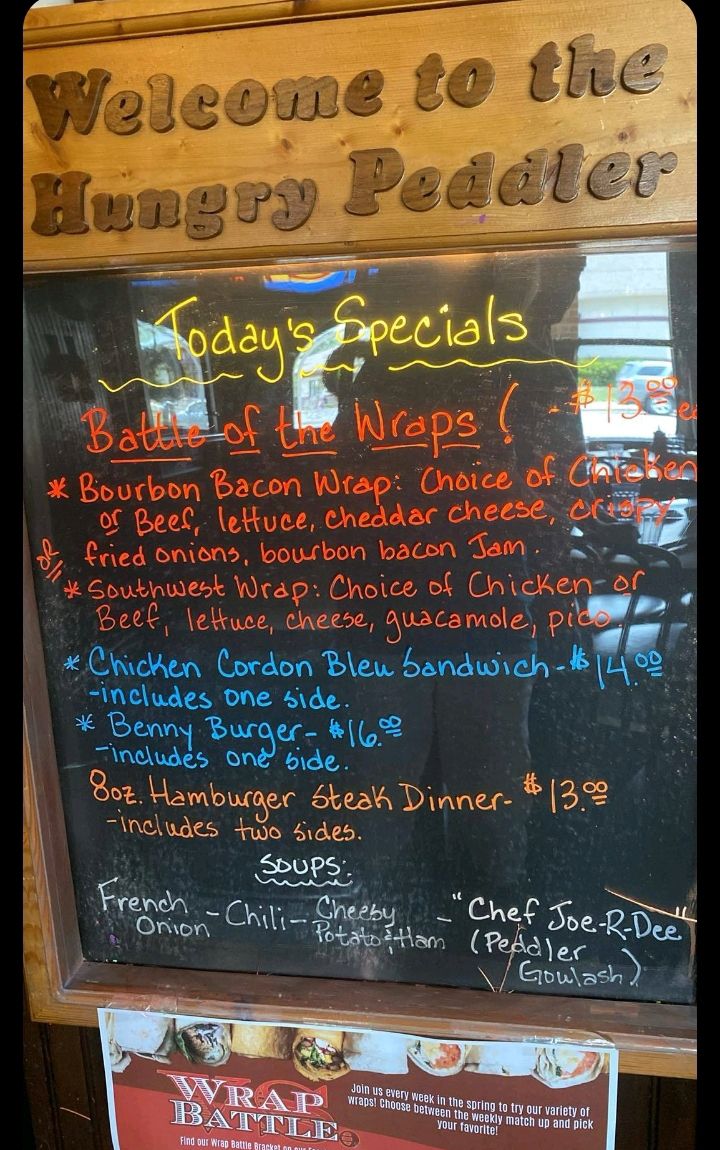 Welcome to the
Hungry Peddler
Today's Specials
Battle of the Wraps! - $13.00 ea
* Bourbon Bacon Wrap: Choice of Chicken
or Beef, lettuce, cheddar cheese, crispy
fried onions, bourbon bacon Jam.
or
* Southwest Wrap: Choice of Chicken or
Beef, lettuce, cheese, guacamole, pico.
* Chicken Cordon Bleu Sandwich - $14.00
- includes one side.
* Benny Burger - $16.00
- includes one side.
8oz. Hamburger Steak Dinner - $13.00
- includes two sides.
SOUPS:
French Onion - Chili - Cheesy Potato & Ham - "Chef Joe-R-Dee"
(Peddler
Goulash)
WRAP
BATTLE
Join us every week in the spring to try our variety of
wraps! Choose between the weekly match up and pick
your favorite!
Find our Wrap Battle Bracket on our